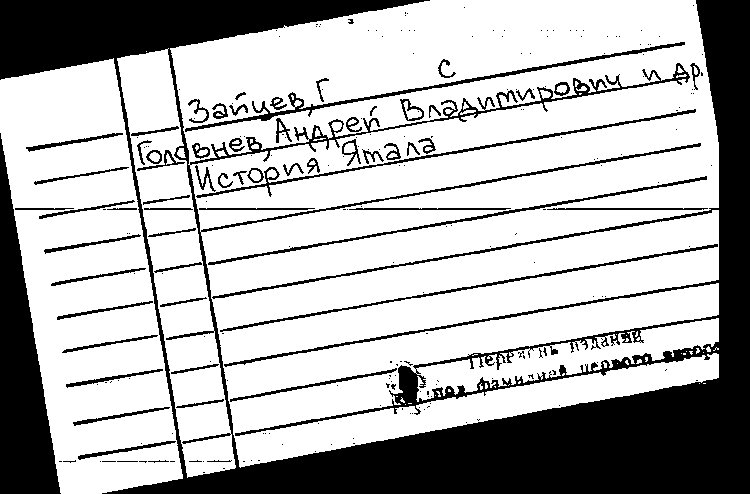 Зайцев, Г С
Головнев, Андрей Владимирович и др.
История Ямала
Перечень изданий
см. под фамилией первого автора